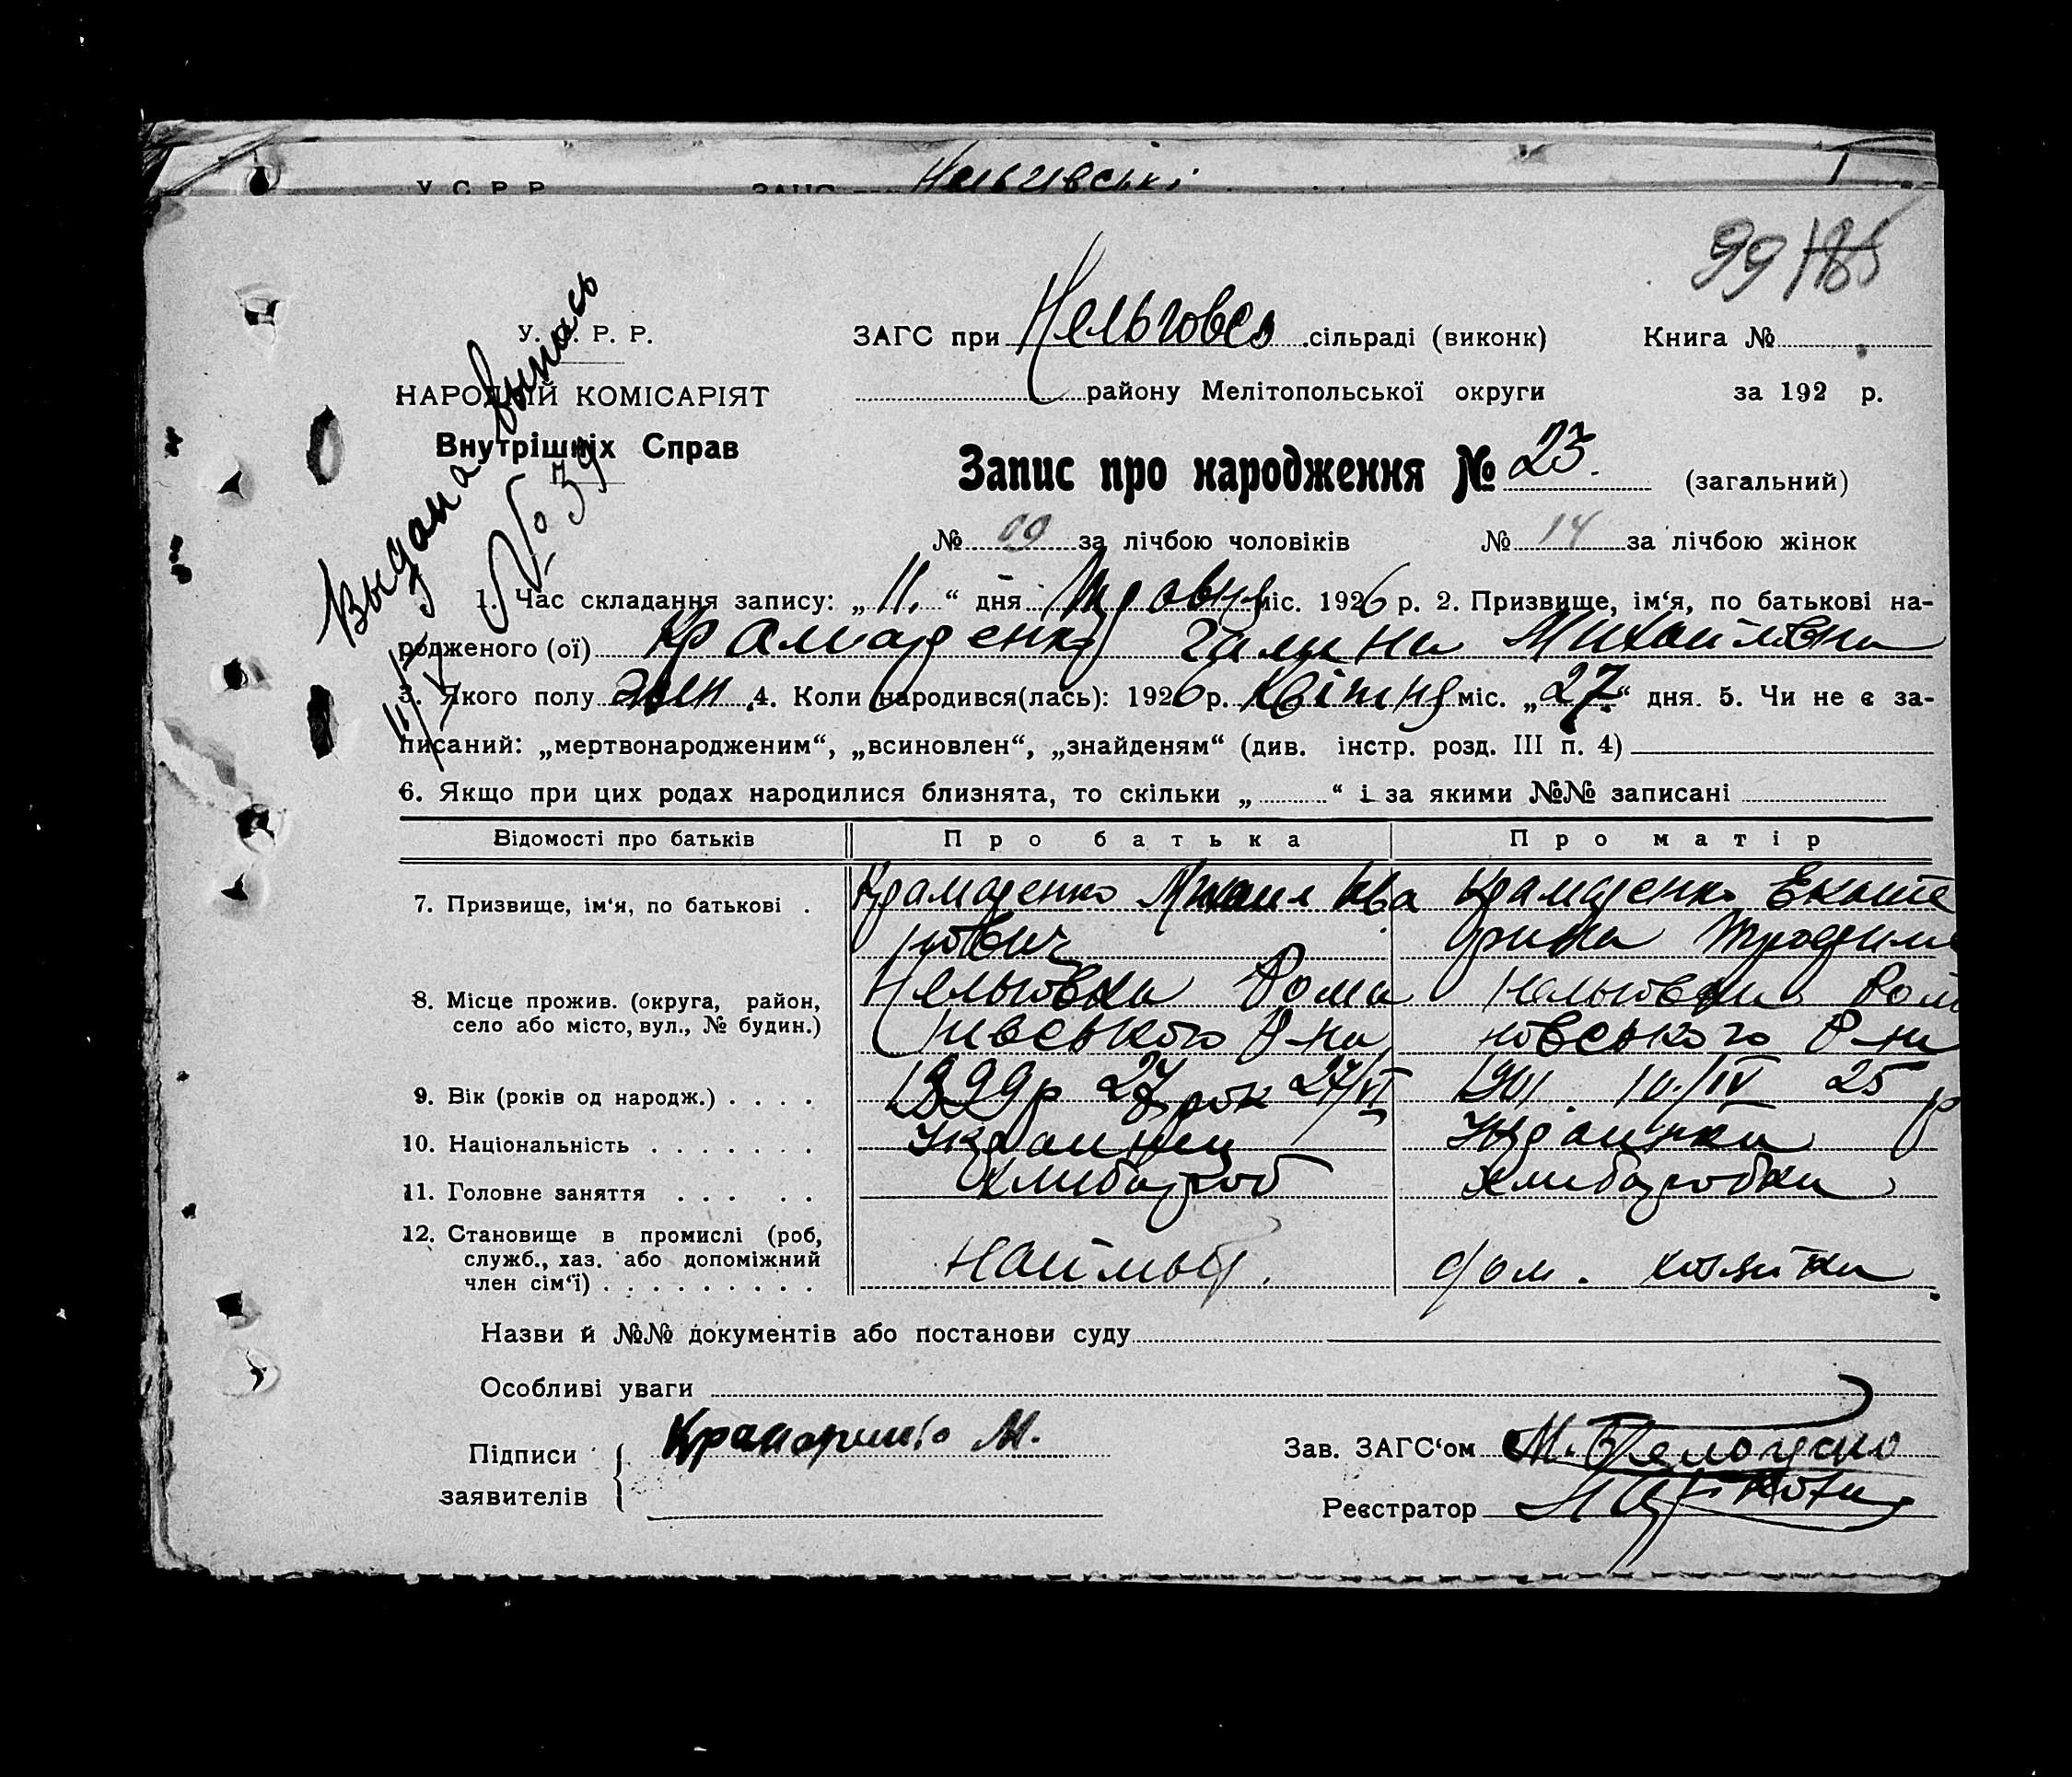 У. С. Р. Р. ЗАГС
99 185
У. Р. Р. ЗАГС при Нельговсь сільраді (виконк) Книга №
НАРОДНІЙ КОМІСАРІЯТ району Мелітопольської округи за 192 р.
Внутрішніх Справ
Запис про народження № 23. (загальний)
Выдана выпись
№ 39
№ 09 за лічбою чоловіків № 14 за лічбою жінок
1. Час складання запису: „ 11. “ дня Травня міс. 1926 р. 2. Призвище, ім‘я, по батькові на-
родженого (ої) Крамаренко Галина Михайлівна
3. Якого полу жен. 4. Коли народився(лась): 1926 р. Квітня міс. „27.“ дня. 5. Чи не є за-
писаний: „мертвонародженим“, „всиновлен“, „знайденям“ (див. інстр. розд. III п. 4)
6. Якщо при цих родах народилися близнята, то скільки „ “ і за якими №№ записані
Відомості про батьків Про батька Про матір
7. Призвище, ім‘я, по батькові . Крамаренко Михаил Ива Крамаренко Екате
нович рина Трофим
8. Місце прожив. (округа, район, Нельговка Рома Нельговка Ром
село або місто, вул., № будин.) нівського Р-на новського Р-на
9. Вік (років од народж.) . . . . 1899р 27 рок 27/VI 1901. 10/IV 25 р
10. Національність . . . . . . . Украинец Украинка
11. Головне заняття . . . . . Хлибороб Хлиборобка
12. Становище в промислі (роб,
служб., хаз. або допоміжний
член сім‘ї) . . . . . . . . . Наймыт. дом. хозяйка
Назви й №№ документів або постанови суду
Особливі уваги
Підписи Крамаренко М. Зав. ЗАГС‘ом М. Белоусько
заявителів Реєстратор